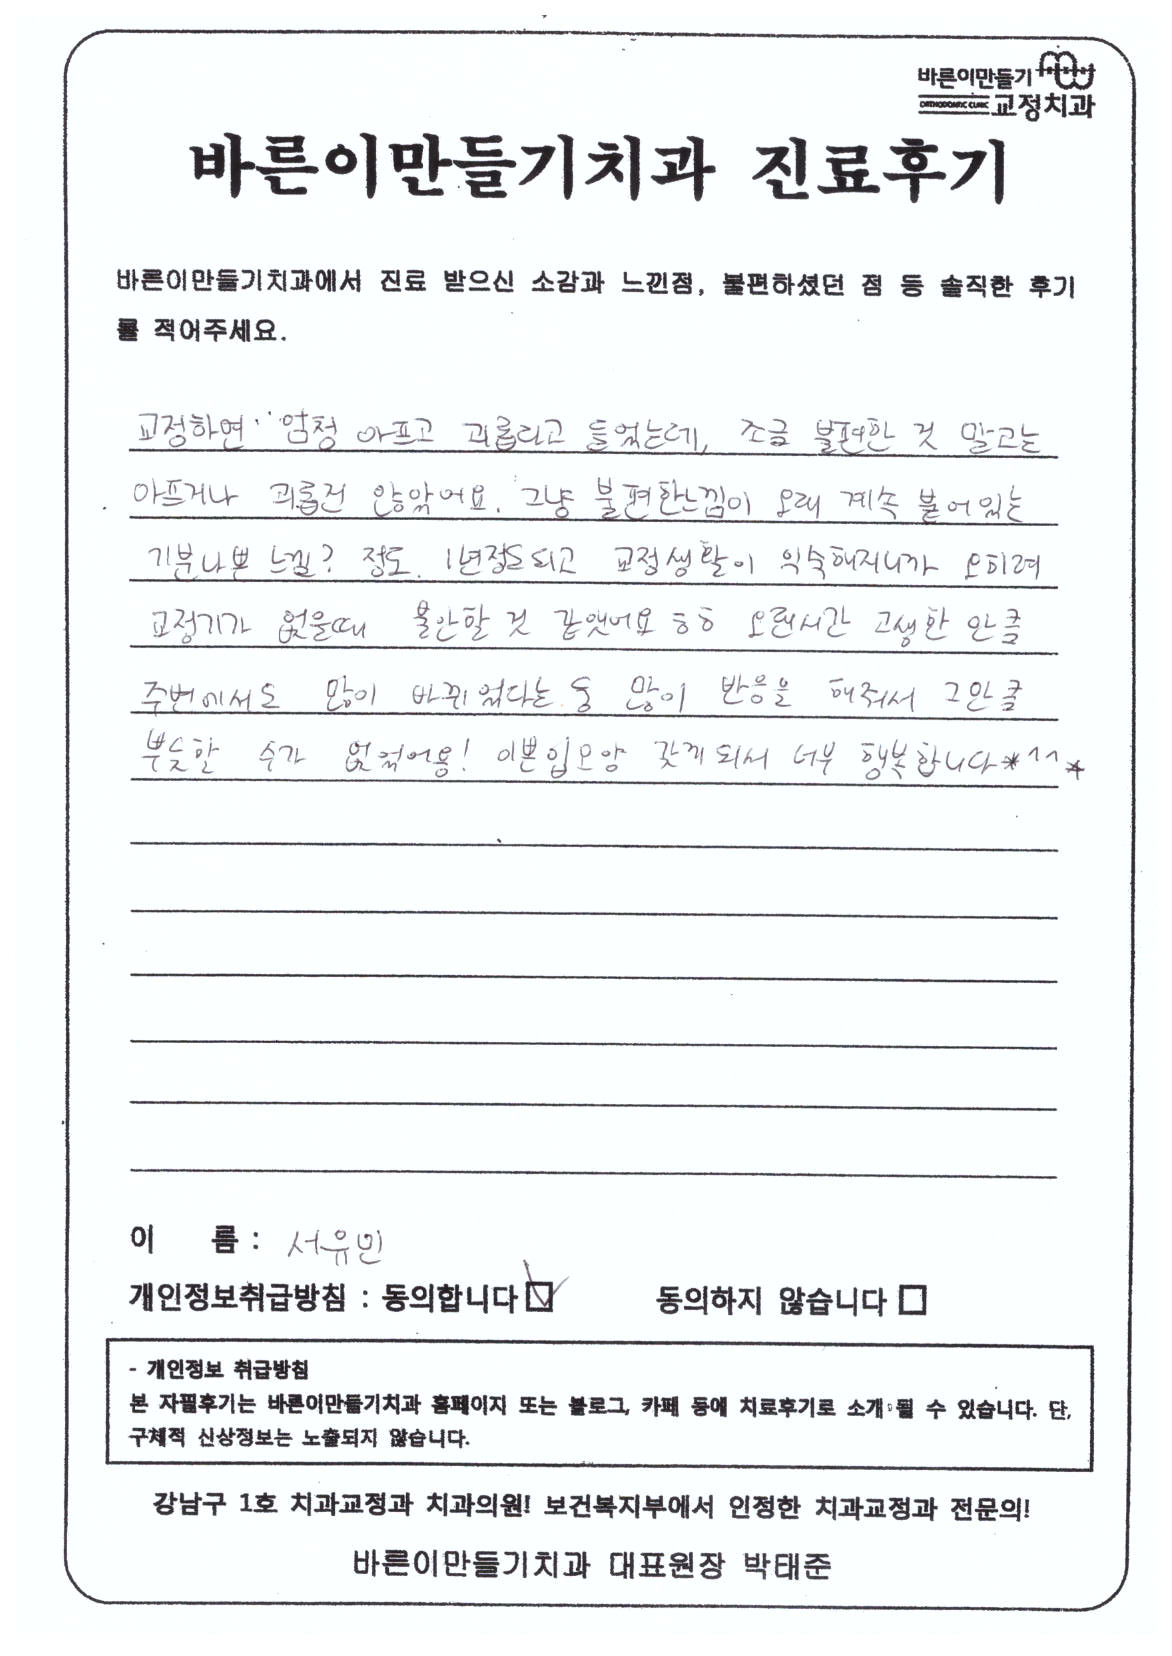 바른이만들기
ORTHODONTIC CLINIC 교정치과
바른이만들기치과 진료후기
바른이만들기치과에서 진료 받으신 소감과 느낀점, 불편하셨던 점 등 솔직한 후기
를 적어주세요.
교정하면 엄청 아프고 괴롭다고 들었는데, 조금 불편한 것 말고는
아프거나 괴롭진 않았어요. 그냥 불편한느낌이 오래 계속 붙어있는
기분나쁜 느낌? 정도. 1년정도되고 교정생활이 익숙해지니까 오히려
교정기가 없을때 불안할 것 같앳어요 ㅎㅎ 오랜시간 고생한 만큼
주변에서도 많이 바뀌었다는 등 많이 반응을 해줘서 그만큼
뿌듯할 수가 없었어용! 이쁜입모양 갖게되서 너무 행복합니다*^^*
이 름 : 서유민
개인정보취급방침 : 동의합니다 ☑ 동의하지 않습니다 □
- 개인정보 취급방침
본 자필후기는 바른이만들기치과 홈페이지 또는 블로그, 카페 등에 치료후기로 소개 될 수 있습니다. 단,
구체적 신상정보는 노출되지 않습니다.
강남구 1호 치과교정과 치과의원! 보건복지부에서 인정한 치과교정과 전문의!
바른이만들기치과 대표원장 박태준